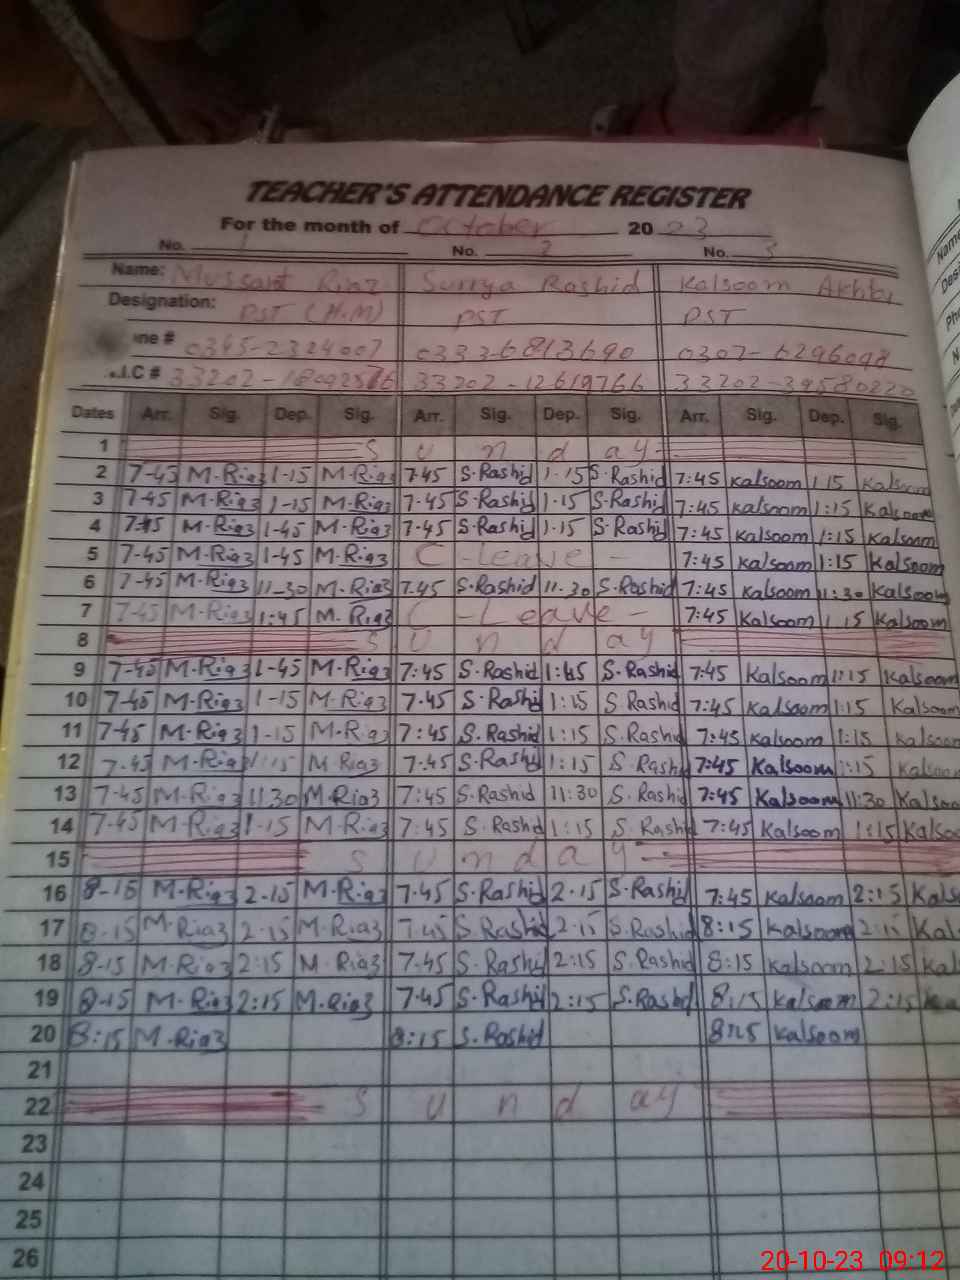 TEACHER'S ATTENDANCE REGISTER
For the month of October 2023
No. 1 No. 2 No. 3
Name: Mussarat Riaz Surrya Rashid Kalsoom Akhtar
Designation: PST (H.M) PST PST
ne # 0345-2324007 0333-6813690 0307-6296098
.I.C # 33202-12619766 33202-39580220
Dates Arr. Sig. Dep. Sig. Arr. Sig. Dep. Sig. Arr. Sig. Dep. Sig.
1 Sunday
2 7-45 M-Riaz 1-15 M-Riaz 7.45 S.Rashid 1.15 S.Rashid 7:45 Kalsoom 1 15 Kalsoom
3 7-45 M-Riaz 1-15 M-Riaz 7-45 S.Rashid 1.15 S.Rashid 7:45 Kalsoom 1:15 Kalsoom
4 7-45 M-Riaz 1-45 M-Riaz 7-45 S.Rashid 1.15 S.Rashid 7:45 Kalsoom 1:15 Kalsoom
5 7-45 M-Riaz 1-45 M-Riaz C-Leave - 7:45 Kalsoom 1:15 Kalsoom
6 7-45 M-Riaz 11-30 M-Riaz 7.45 S.Rashid 11.30 S.Rashid 7:45 Kalsoom 11:30 Kalsoom
7 7-45 M-Riaz 1:45 M.Riaz C-Leave - 7:45 Kalsoom 1 15 Kalsoom
8 Sunday
9 7-45 M-Riaz 1-45 M-Riaz 7:45 S.Rashid S.Rashid 7:45 Kalsoom 1:15 Kalsoom
10 7-45 M-Riaz 1-15 M-Riaz 7.45 S.Rashid 1:15 S.Rashid 7:45 Kalsoom 1:15 Kalsoom
11 7-45 M-Riaz 1-15 M-Riaz 7:45 S.Rashid 1:15 S.Rashid 7:45 Kalsoom 1:15 Kalsoom
12 7-45 M-Riaz 1:15 M Riaz 7:45 S.Rashid 1:15 S.Rashid 7:45 Kalsoom 1:15 Kalsoom
13 7-45 M-Riaz 11.30 M-Riaz 7:45 S.Rashid 11:30 S.Rashid 7:45 Kalsoom 11:30 Kalsoo
14 7-45 M-Riaz 1-15 M-Riaz 7:45 S.Rashid 1:15 S.Rashid 7:45 Kalsoom 1:15 Kalso
15 Sunday
16 8-15 M-Riaz 2-15 M-Riaz 7.45 S.Rashid 2.15 S.Rashid 7:45 Kalsoom 2:15 Kals
17 8-15 M-Riaz 2-15 M-Riaz 7.45 S.Rashid 2:15 S.Rashid 8:15 Kalsoom 2:15 Kal
18 8-15 M-Riaz 2:15 M-Riaz 7-45 S.Rashid 2:15 S.Rashid 8:15 Kalsoom 2 15 Kal
19 8-15 M-Riaz 2:15 M-Riaz 7.45 S.Rashid 2:15 S.Rashid 8:15 Kalsoom 2:15 Ka
20 8:15 M-Riaz 8:15 S.Rashid 8:15 Kalsoom
21
22 Sunday
23
24
25
26
20-10-23 09:12